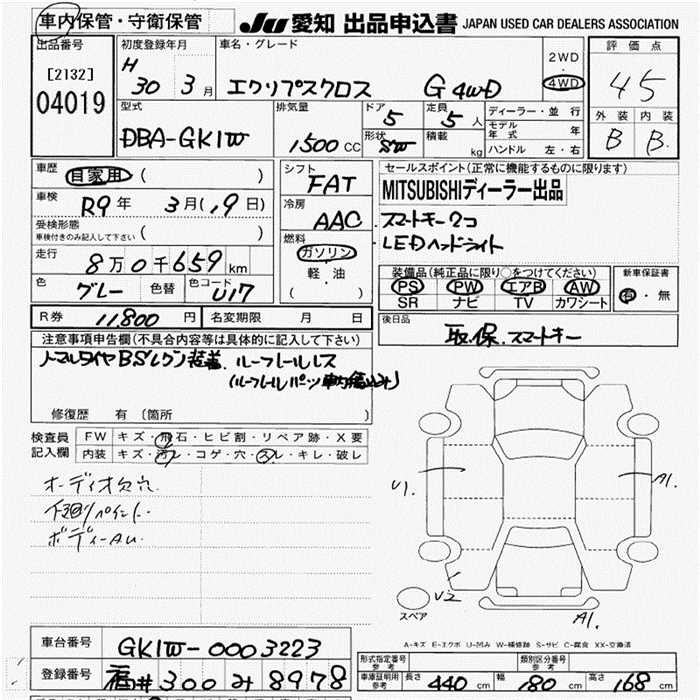 車内保管・守衛保管
JU 愛知 出品申込書 JAPAN USED CAR DEALERS ASSOCIATION
出品番号
[2132]
04019
初度登録年月
H 30 3月
車名・グレード
エクリプスクロス G 4WD
2WD
・
4WD
評価点
4.5
外装 内装
B B
型式
DBA-GK1W
排気量
1500 CC
ドア 5
定員 5 人
形状 SW
積載 kg
ディーラー・並行
モデル年式 年
ハンドル 左・右
車歴
自家用 ( )
車検
R9年 3月(,9日)
受検形態
車検付きのみ記入して下さい ( )
走行
8万0千659km
色 グレー 色替
色コード U17
シフト
FAT
冷房
AAC
燃料
ガソリン
軽・油
( )
セールスポイント(正常に機能するものに限ります)
MITSUBISHIディーラー出品
スマートキー2コ
LEDヘッドライト
装備品(純正品に限り○をつけてください)
PS PW エアB AW
SR ナビ TV カワシート
新車保証書
有・無
R券 11,800 円
名変期限 月 日
後日品
取、保、スマートキー
注意事項申告欄(不具合内容等は具体的に記入して下さい)
ノーマルタイヤ ルーフレールレス
修復歴 有 (箇所
検査員
記入欄
FW キズ・飛石・ヒビ割・リペア跡・X要
内装 キズ・汚レ・コゲ・穴・スレ・キレ・破レ
オーディオ欠穴
下廻りペイント
ボディーAU
U1
A1.
U2
A1.
スペア
A-キズ E-エクボ U-凹み W-補修跡 S-サビ C-腐食 XX-交換済
車台番号 GK1W-0003223
登録番号 300 み 8978
形式指定番号
参考
類別区分番号
参考
車庫証明用
参考
長さ 440 cm
幅 180 cm
高さ 168 cm